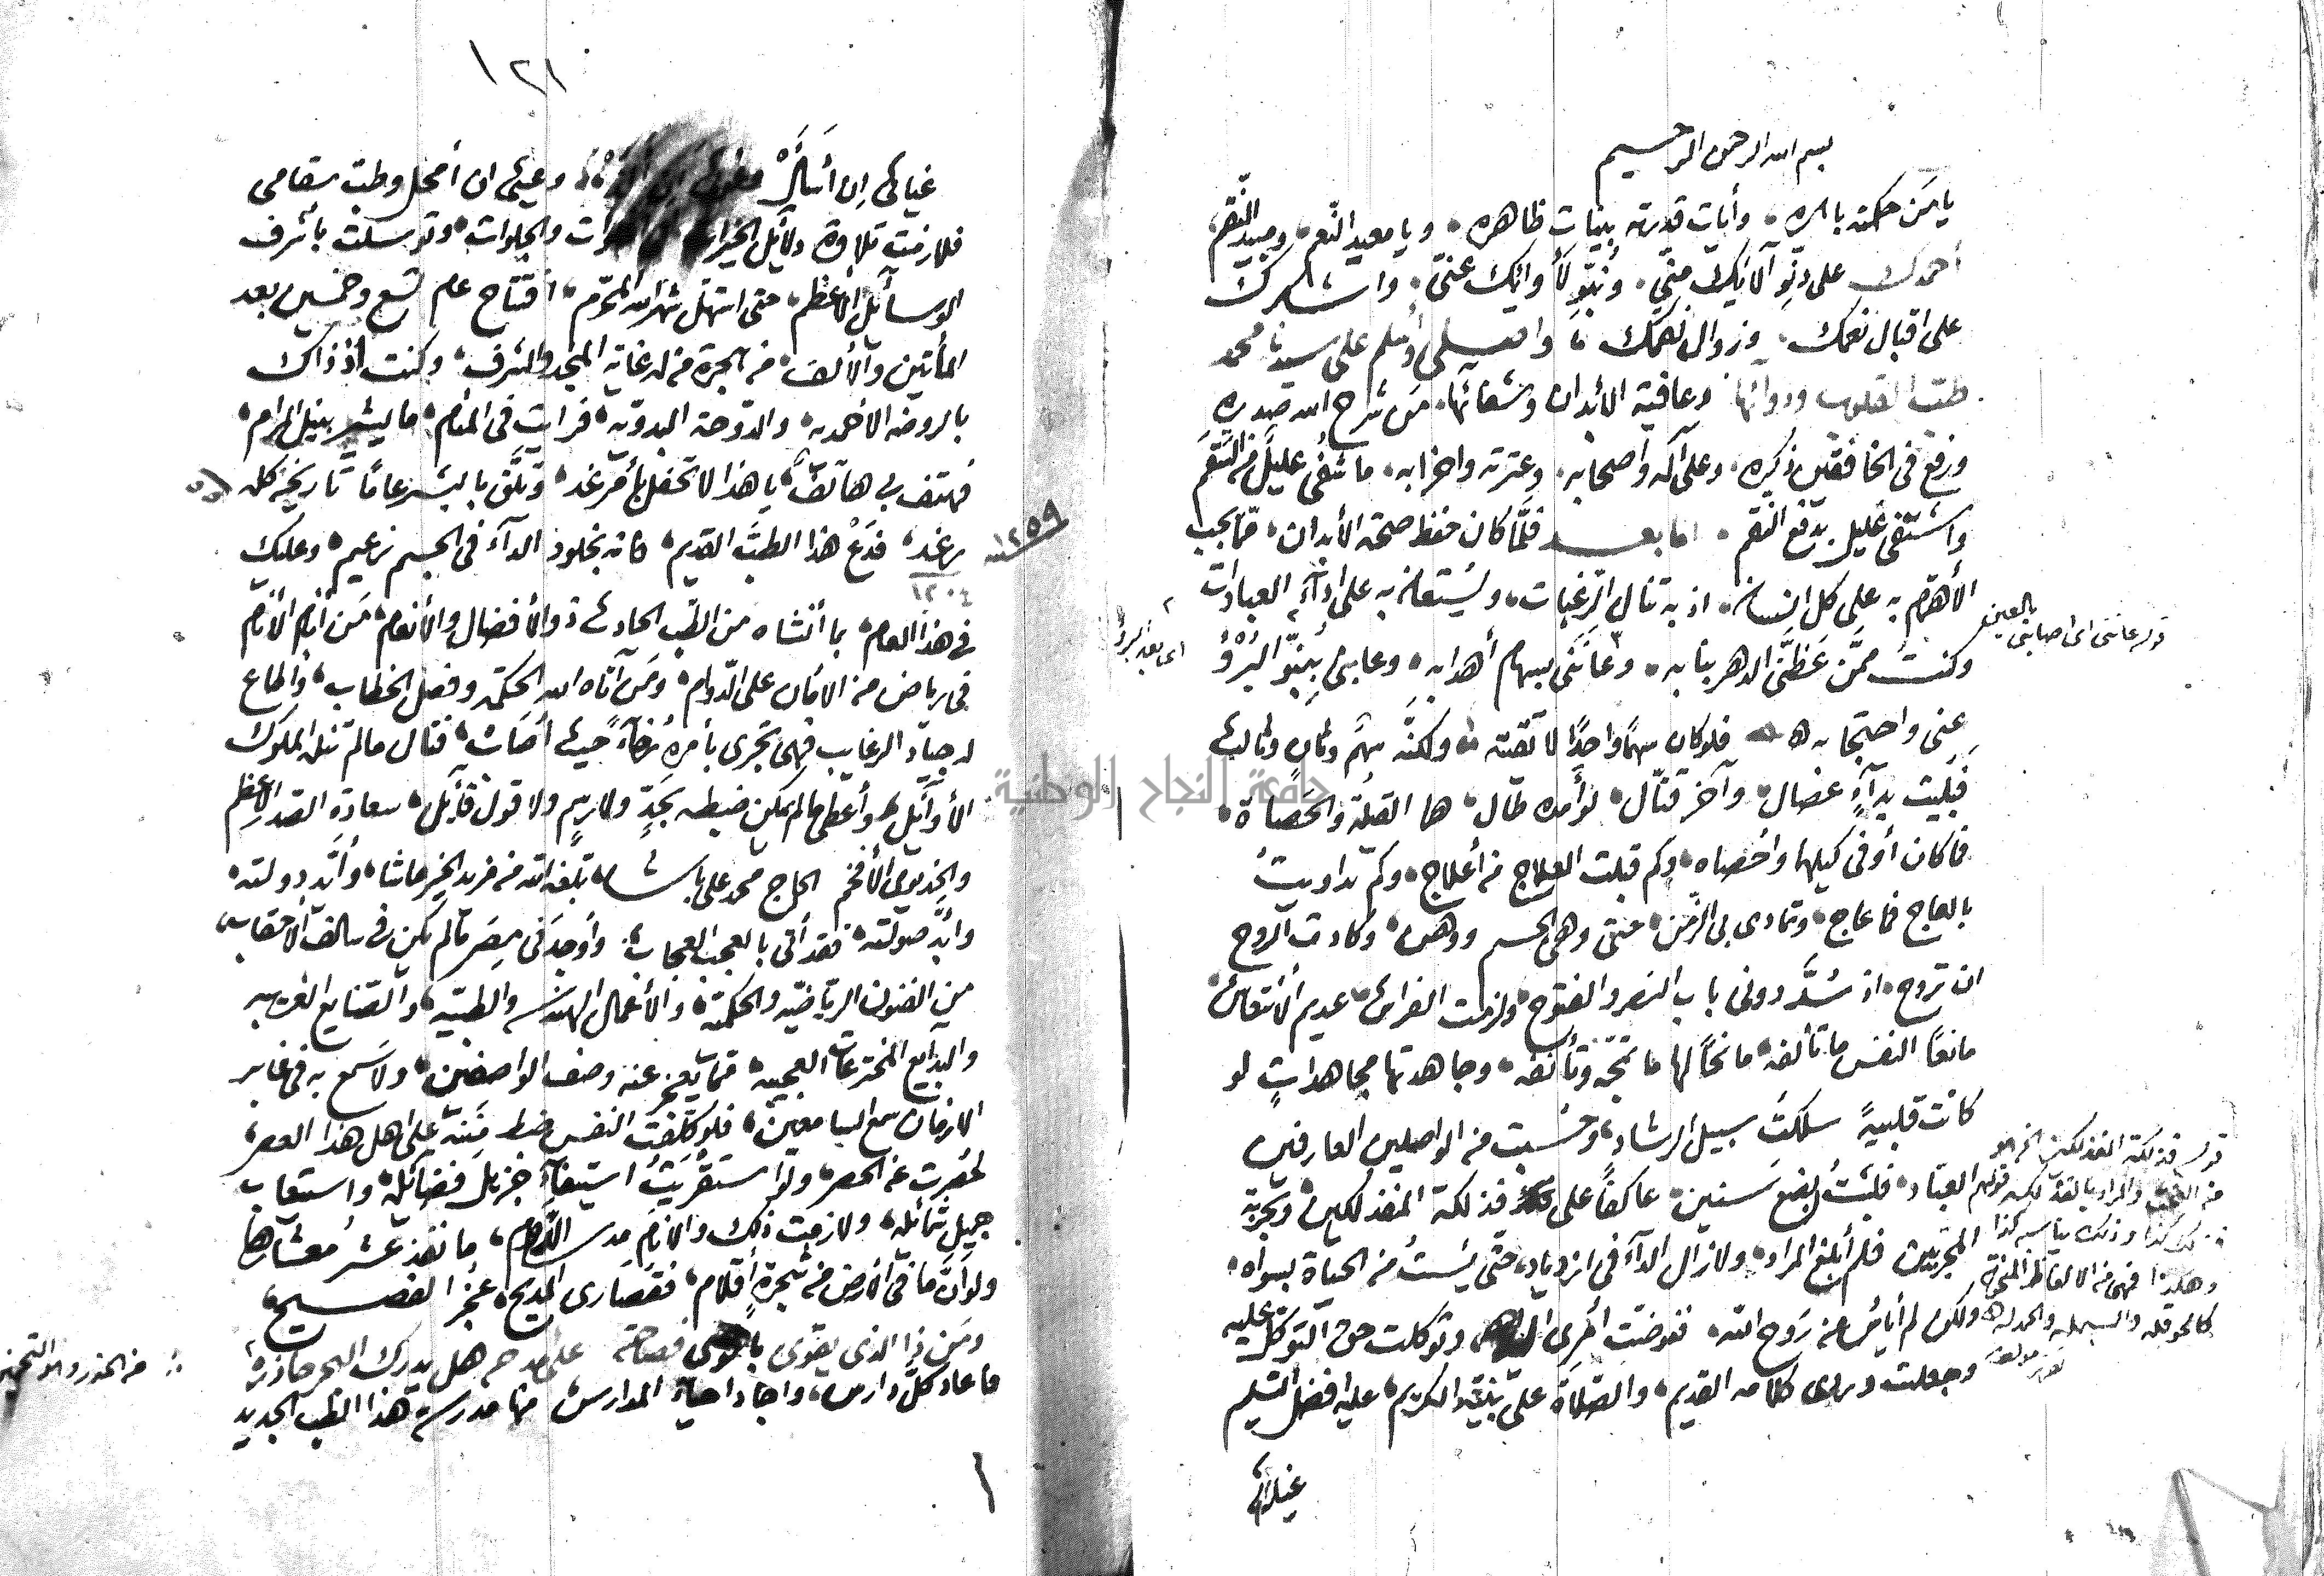 بسم الله الرحمن الرحيم
يا مَن حكمته باهره، وأيات قدرته بينات ظاهره، ويا معيد النّعم، ومبيد النّقم،
أحمدك على دنوّ آلائك منّي، ونبوّ لأوائك عنّي، واشكرك
على اقبال نعمك، وزوال نقمك، واصلى وأسلم على سيدنا محمد
طبّ القلوب ودوائها، وعافية الأبدان وشفائها، مَن شرح الله صدره
ورفع فى الخافقين ذكره، وعلى آله وأصحابه، وعترته واحزابه، ما شفى عليل من السّقم
واشتفى غليل بدفع النقم، اما بعد فلمّا كان حفظ صحة الأبدان، ممّا يجب
الأهتمام به على كل انسان، اذ به تنال الرغبات، ويستعان به على اداء العبادات
وكنتُ ممَّن عَظَّنى الدهر بنابه، وعانَنى بسهام أهدابه، وعابنى بنبوّ البُرْؤ
عنى واحتجابه فلو كان سهمًا واحدًا لاتقيته، ولكنّه سهم وثانٍ وثالث
فبَليت بدآءٍ عضال، وآخر قتّال، لوأمده طال، هما القيلة والحصاة،
فما كان أوفى كيلها وأحصاه، وكم قبلت العلاج من أعلاج، وكم تداويتُ
بالعاج فما عاج، وتمادى بى الزّمن، حتى وهى الجسم ووهن، وكادت الروح
ان تروح، اذ سُدَّ دونى باب النصر والفتوح، ولزمت الفراش، عديم الأنتعاش
مانعًا النفس ما تألفه، مانحًا لها ما تمجّه وتأنفه، وجاهدتها مجاهداتٍ لو
كانت قلبيةً سلكتُ سبيل الرشاد، وحُسبت من الواصلين العارفين
العبّاد، فلبثتُ بضع سنين، عاكفًا على فذلكة المفذلكين، وتجربة
المجرّبين فلم أبلغ المراد، ولازال الدآء فى ازدياد، حتى يئستُ من الحياة بسواه،
ولكن لم أيأس من رَوح الله، ففوضت أمرى وتوكلت حق التوكل عليه
وجعلت وردى كلامه القديم، والصّلاة على نبيّه الكريم، عليه افضل التسليم
قوله عاننى اى اصابنى بالعين
قوله فذلكة
وهكذا فهى من الالفاظ المنحوتة
كالحوقله والبسمله والحمدله
١٢١
غياثى إن أسأل وغيثى ان أمحل وطبّ سقامى
فلازمت تلاوة دلائل الخيرات والجلوات، وتوسلت بأشرف
الوسائل الأعظم، حتى استهل شهر الله المحرّم، افتتاح عام تسع وخمسين بعد
المأتين والألف، من هجرة من له غاية المجد والشرف، وكنت اذ ذاك
بالروضة الأحمديه، والدّوحة البدويّه، فرأيت فى المنام، ما يبشر بنيل المرام،
فهتف بى هاتف، يا هذا لا تحفل بأمر غد، وتلَّق بالبشر عامًا تاريخه كله
رغد، فدَعْ هذا الطبّ القديم، فانه بخلود الدآء فى الجسم زعيم، وعليك
١٢٠٤
١٢٥٩
فى هذا العام، بما أنشاه من الطّب الحادث ذو الأفضال والأنعام، مَن أنام الأنام
فى رياض من الامان على الدّوام، ومَن آتاه الله الحكمة وفصل الخطاب، وأطاع
له جياد الرغايب فهى تجرى بأمره رُخآءً حيث أصاب، فنال ما لم تنله الملوك
الأوآئل، وأعطى ما لم يمكن ضبطه بحَدٍّ ولا رسم ولا قول قآئل، سعادة الصّدر الاعظم
والخديوى الأفخم الحاج محمد على باشا، بلّغه الله من مزيد الخير ما شا، وأيّد دولته،
وأبّد صولته، فقد أتى بالعجب العجاب، وأوجد فى مِصر ما لم يكن فى سالف الأحقاب
من الفنون الرياضيّه والحكمية، والأعمال الهندسيه والطبيّه، والصّنايع الغريبه
والبدآيع المخترعات العجيبه، ممّا يعجز عنه وصف الواصفين، ولا سَمع به فى غابر
الازمان سمع السامعين، فلو كلّفت النفس ضبط مننه على اهل هذا العصر،
لحُصِرت عن الحصر، ولو استقريتُ استيفآء جزيل فضائله، واستيعاب
جميل شمائله، ولازمت ذلك والانام مدى الدّوام، ما نفذ عُشرُ معشارها
ولو أنّ ما فى الارض من شجرةٍ أقلام، فقصارى المديح، عجز الفصيح،
ومَن ذا الذى يقوى فصاحة على مدحه هل يدرك البحر حازره
فأعاد كلَّ دارس، واجاد احياء المدارس منها مدرسة هذا الطب الجديد
من الحذر وهو التخمين
جامعة النجاح الوطنية